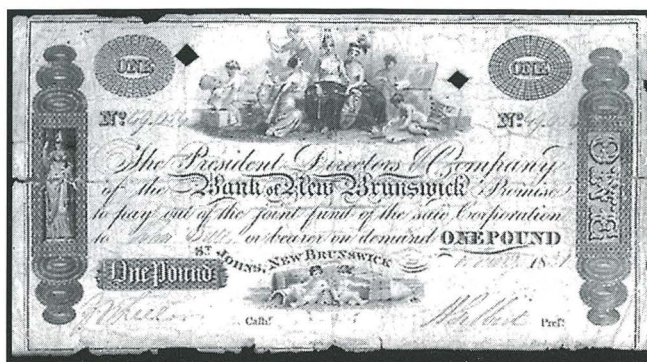 ONE
ONE
Nº
Nº
The President Directors & Company
of the Bank of New Brunswick Promise
to pay out of the joint fund of the said Corporation
to or bearer on demand ONE POUND
ST JOHNS, NEW BRUNSWICK
18
One Pound
Cashr.
Prest.
ONE